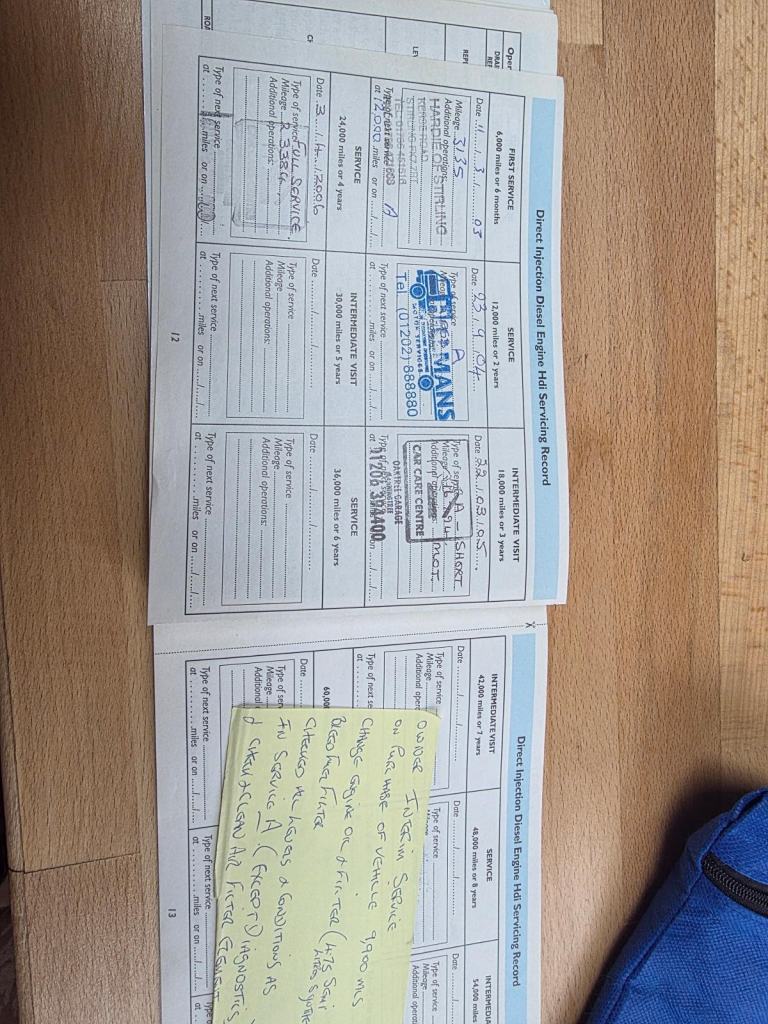 Direct Injection Diesel Engine Hdi Servicing Record
FIRST SERVICE
6,000 miles or 6 months
Date 11 / 3 / 03
Mileage 3135
Additional operations:
HARDIE OF STIRLING
KERSE ROAD
STIRLING FK7 7RT
TEL 01786 451616
Type of next service A
at 12,000 miles or on ...../...../.....
SERVICE
12,000 miles or 2 years
Date 23 / 9 / 04
Type of service A
TRUCKMANS
MOTOR SERVICES
Tel (01202) 888880
Type of next service
at ......... miles or on ...../...../.....
INTERMEDIATE VISIT
18,000 miles or 3 years
Date 22 / 03 / 05
Type of service A - SHORT
Mileage
Additional operations: MOT.
CAR CARE CENTRE
GARAGE
01206 394400
Type of next service
at
SERVICE
24,000 miles or 4 years
Date 3 / 4 / 2006
Type of service FULL SERVICE.
Mileage 23384
Additional operations:
Type of next service
at ......... miles or on
INTERMEDIATE VISIT
30,000 miles or 5 years
Date ......../......../........
Type of service
Mileage
Additional operations:
Type of next service
at ......... miles or on ...../...../.....
SERVICE
36,000 miles or 6 years
Date ......../......../........
Type of service
Mileage
Additional operations:
Type of next service
at ......... miles or on ...../...../.....
12
Direct Injection Diesel Engine Hdi Servicing Record
INTERMEDIATE VISIT
42,000 miles or 7 years
Date ......../......../........
Type of service
Mileage
Additional oper
Type of next se
at
SERVICE
48,000 miles or 8 years
Date ......../......../........
Type of service
INTERMEDIA
54,000 miles
Date
Type of service
Mileage
Additional operat
60,00
Date
Type of ser
Mileage
Additional
Type of next service
at ......... miles or on ...../...../.....
Type of next service
at ......... miles or on ...../...../.....
Type o
at
OWNER INTERIM SERVICE
ON PURCHASE OF VEHICLE 9,900 MLS
CHANGE ENGINE OIL & FILTER (4.75
LITRES
FUEL FILTER
CHECKED ALL LEVELS & CONDITIONS AS
IN SERVICE A (EXCEPT DIAGNOSTICS)
& CHECK & CLEAN AIR FILTER ELEMENT
13